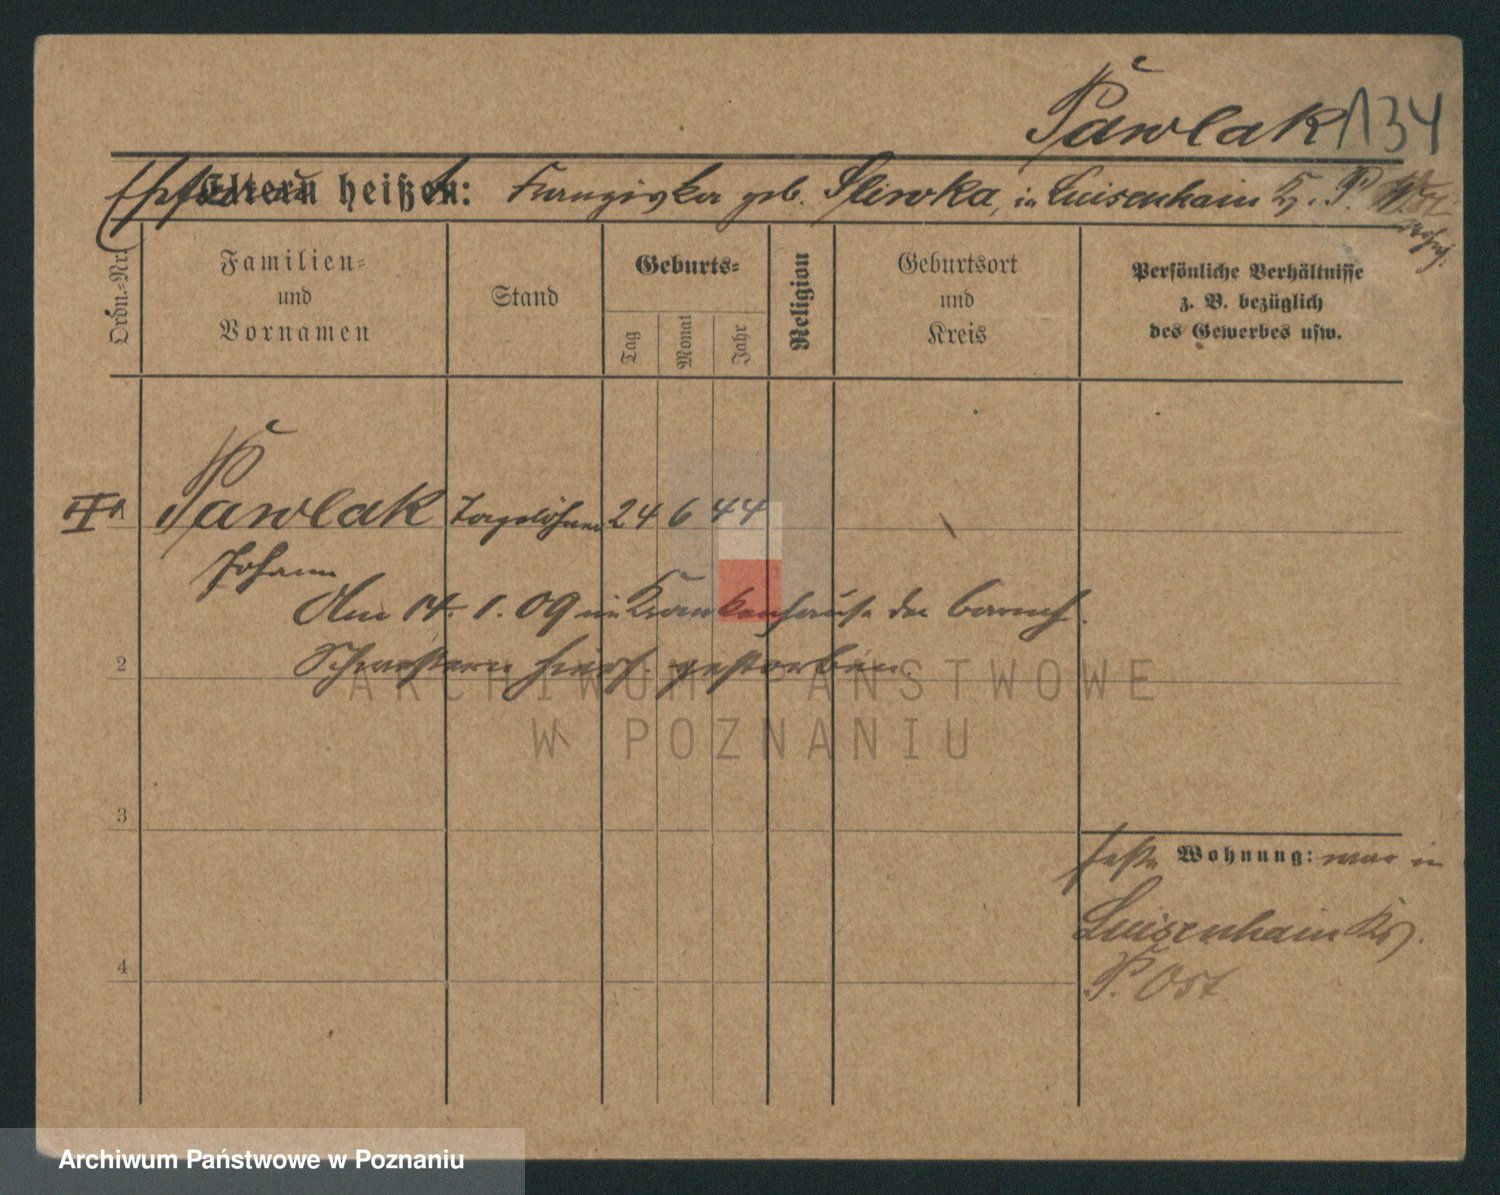 Pawlak 134
Eltern heißen: Franziska geb. Sliwka, in Luisenhain Kr. P.
wohnh.
Ordn.-Nr.
Familien-
und
Vornamen
Stand
Geburts-
Tag
Monat
Jahr
Religion
Geburtsort
und
Kreis
Persönliche Verhältnisse
z. B. bezüglich
des Gewerbes usw.
1 Pawlak Tagelöhner 24 6 44
Johann
Am 14. 1. 09 im Krankenhause der barmh.
2 Schwestern hiers. gestorben.
ARCHIWUM PAŃSTWOWE
W POZNANIU
3
feste Wohnung: war in
Luisenhain Krs.
4
P. Ost
Archiwum Państwowe w Poznaniu